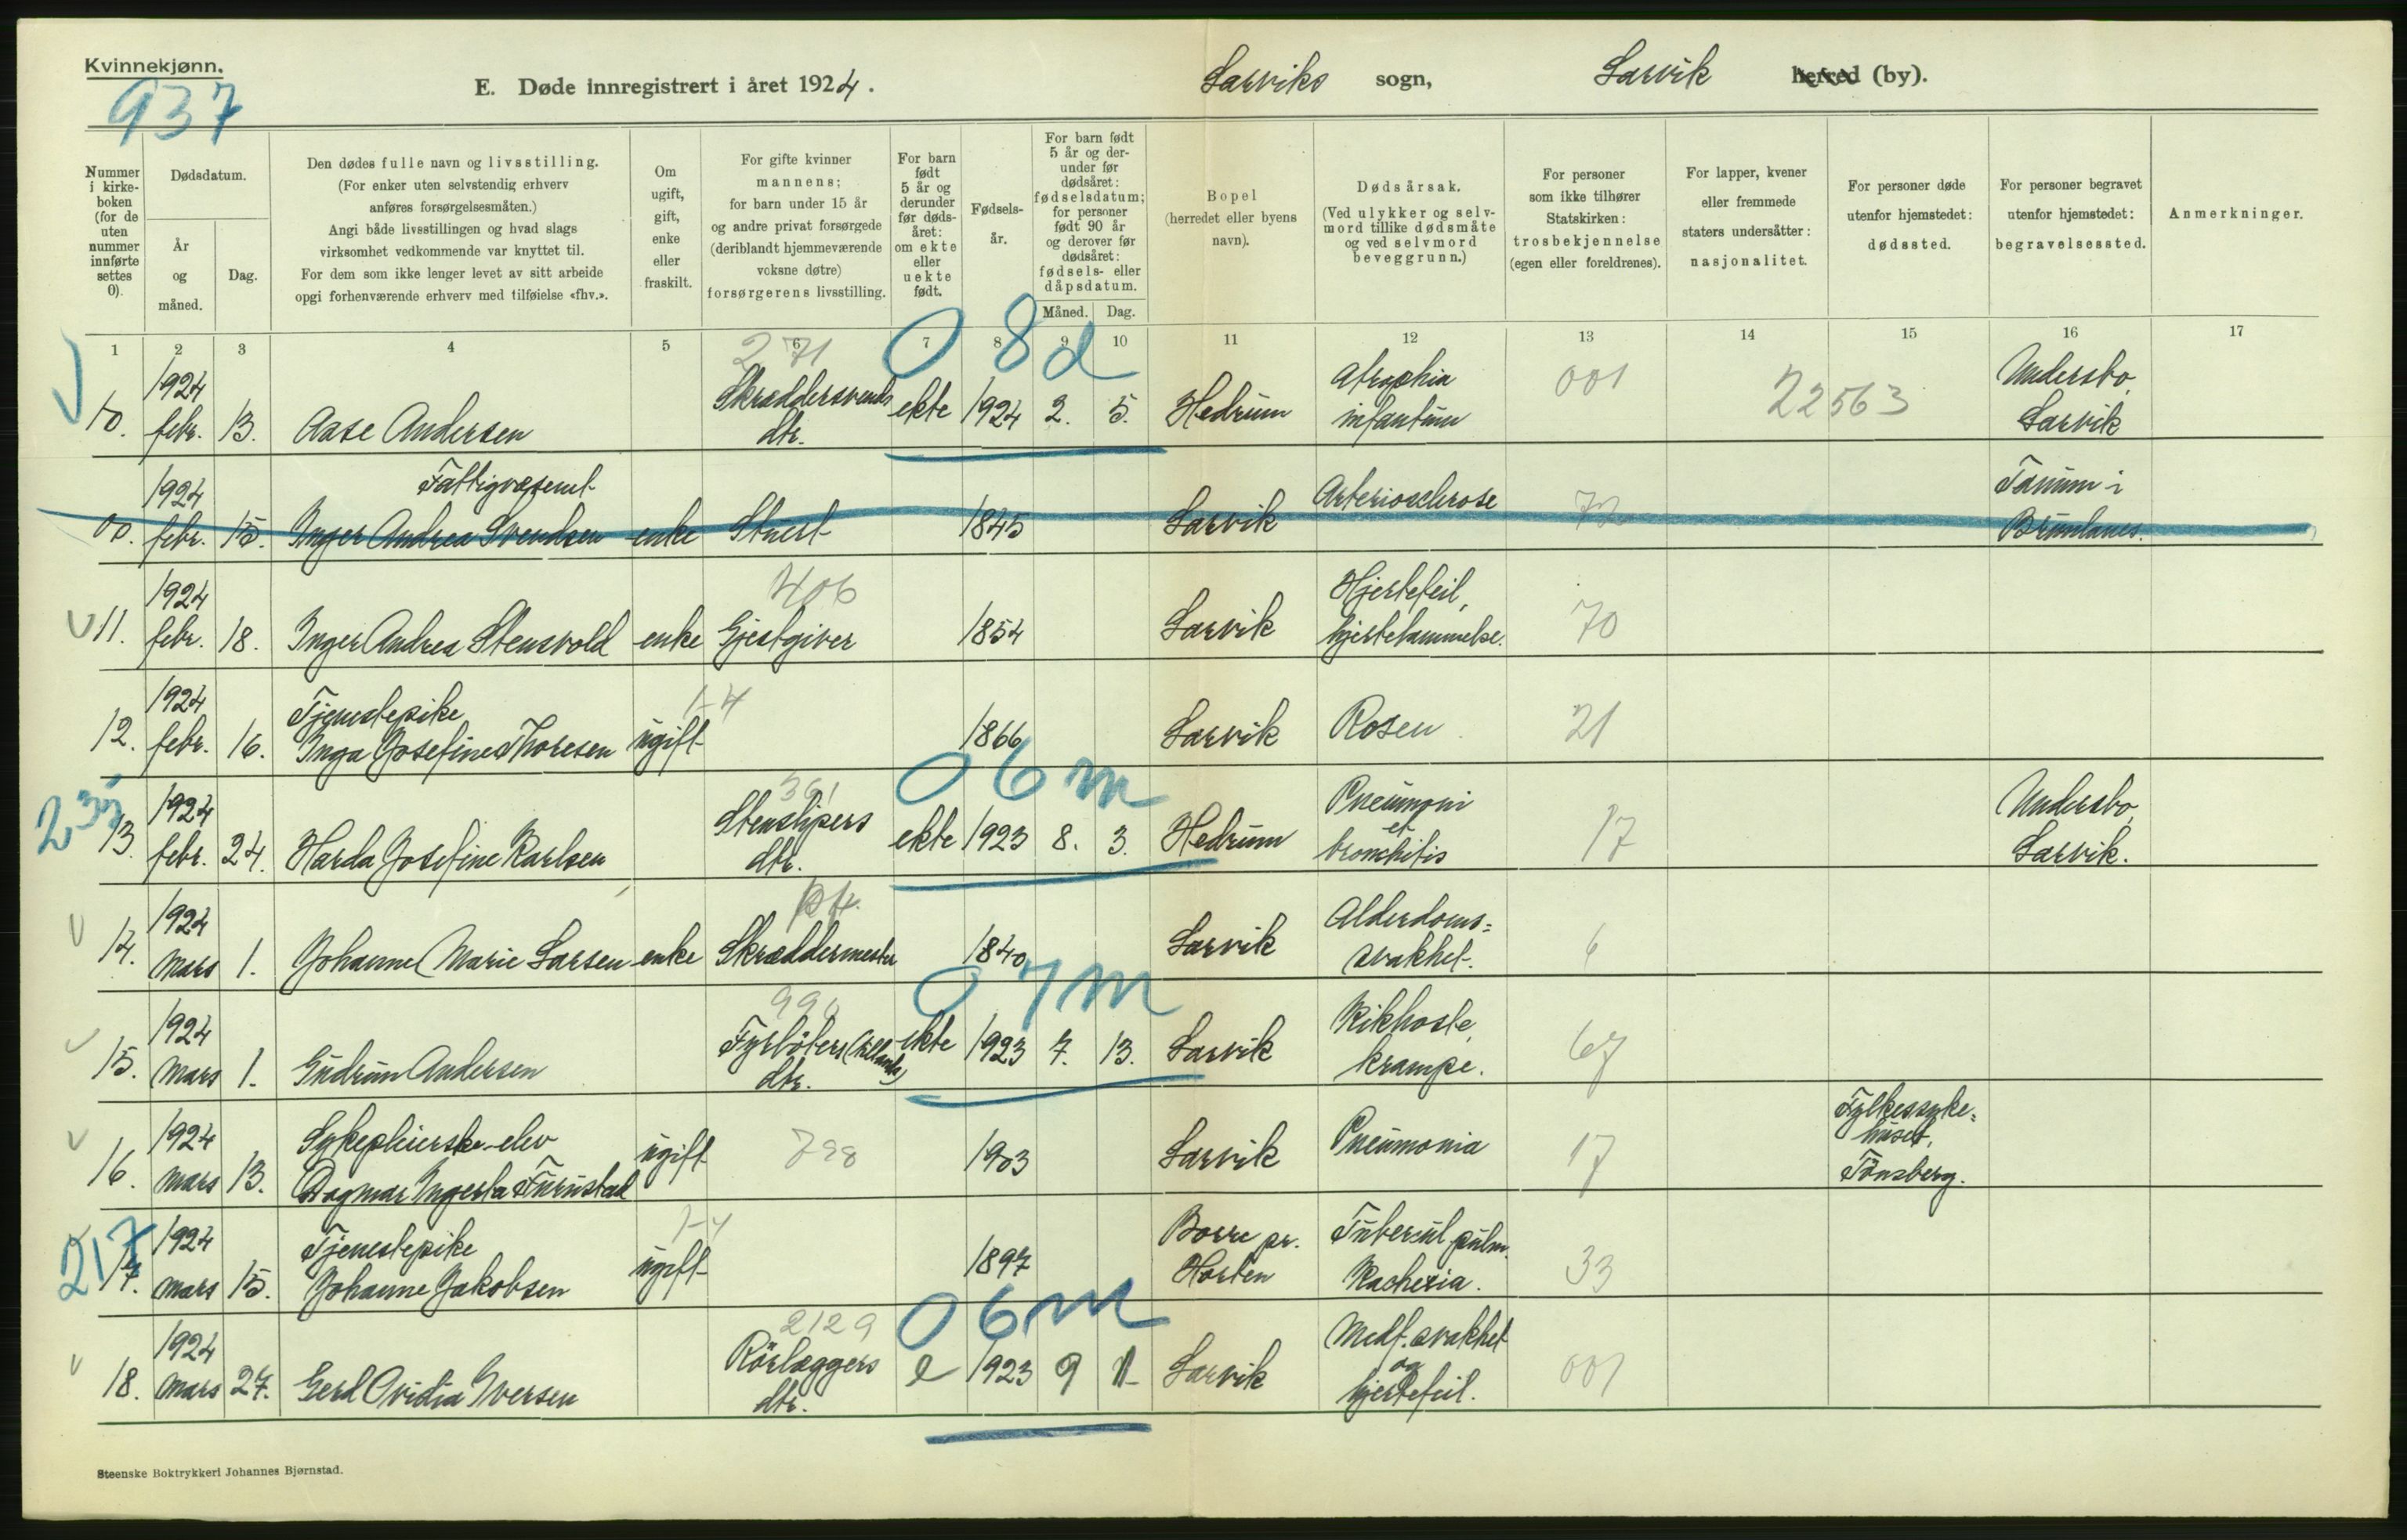 Kvinnekjønn.
937
E. Døde innregistrert i året 1924.
Larviks sogn,
Larvik herred (by).
Nummer i kirkeboken (for de uten nummer innførte settes 0).
Dødsdatum.
År og måned.
Dag.
Den dødes fulle navn og livsstilling.
(For enker uten selvstendig erhverv
anføres forsørgelsesmåten.)
Angi både livsstillingen og hvad slags
virksomhet vedkommende var knyttet til.
For dem som ikke lenger levet av sitt arbeide
opgi forhenværende erhverv med tilføielse «fhv.».
Om
ugift,
gift,
enke
eller
fraskilt.
For gifte kvinner
mannens;
for barn under 15 år
og andre privat forsørgede
(deriblandt hjemmeværende
voksne døtre)
forsørgerens livsstilling.
For barn
født
5 år og
derunder
før døds-
året:
om ekte
eller
uekte
født.
Fødsels-
år.
For barn født
5 år og der-
under før
dødsåret:
fødselsdatum;
for personer
født 90 år
og derover før
dødsåret:
fødsels- eller
dåpsdatum.
Måned.
Dag.
Bopel
(herredet eller byens
navn).
Dødsårsak.
(Ved ulykker og selv-
mord tillike dødsmåte
og ved selvmord
beveggrunn.)
For personer
som ikke tilhører
Statskirken:
trosbekjennelse
(egen eller foreldrenes).
For lapper, kvener
eller fremmede
staters undersåtter:
nasjonalitet.
For personer døde
utenfor hjemstedet:
dødssted.
For personer begravet
utenfor hjemstedet:
begravelsessted.
Anmerkninger.
1 2 3 4 5 6 7 8 9 10 11 12 13 14 15 16 17
271
0 8 d
10. 1924 febr. 13. Aase Andersen Skræddersvends dtr. ekte 1924 2. 5. Hedrum Atrophia infantum 001 22563 Undersbo, Larvik
00. 1924 febr. 15. Fattigvæsenet Inger Andrea Svendsen enke Stuert 1845 Larvik Arteriosclerose Tanum i Brunlanes.
406
11. 1924 febr. 18. Inger Andrea Stensvold enke Gjestgiver 1854 Larvik Hjertefeil, hjertelammelse. 70
1-4
12. 1924 febr. 16. Tjenestepike Inga Josefine Thoresen ugift 1866 Larvik Rosen 21
235
361
0 6 m
13. 1924 febr. 24. Harda Josefine Karlsen Stenslipers dtr. ekte 1923 8. 3. Hedrum Pneumoni et bronchitis 17 Undersbo, Larvik.
14. 1924 mars 1. Johanne Marie Larsen enke Skræddermester 1840 Larvik Alderdoms= svakhet. 6
0 7 m
15. 1924 mars 1. Gudrun Andersen Fyrbøters dtr. ekte 1923 7. 13. Larvik Kikhoste, krampe. 67
16. 1924 mars 13. Sykepleierske-elev Dagmar Ingerta Furustad ugift 798 1903 Larvik Pneumonia 17 Fylkessyke= huset, Tønsberg.
217
1-4
17. 1924 mars 15. Tjenestepike Johanne Jakobsen ugift 1897 Borre pr. Horten Tubercul. pulm. Kachexia. 33
2129
0 6 m
18. 1924 mars 27. Gerd Ovidia Iversen Rørlæggers dtr. e 1923 9 11 Larvik Medf. svakhet og hjertefeil. 001
Steenske Boktrykkeri Johannes Bjørnstad.